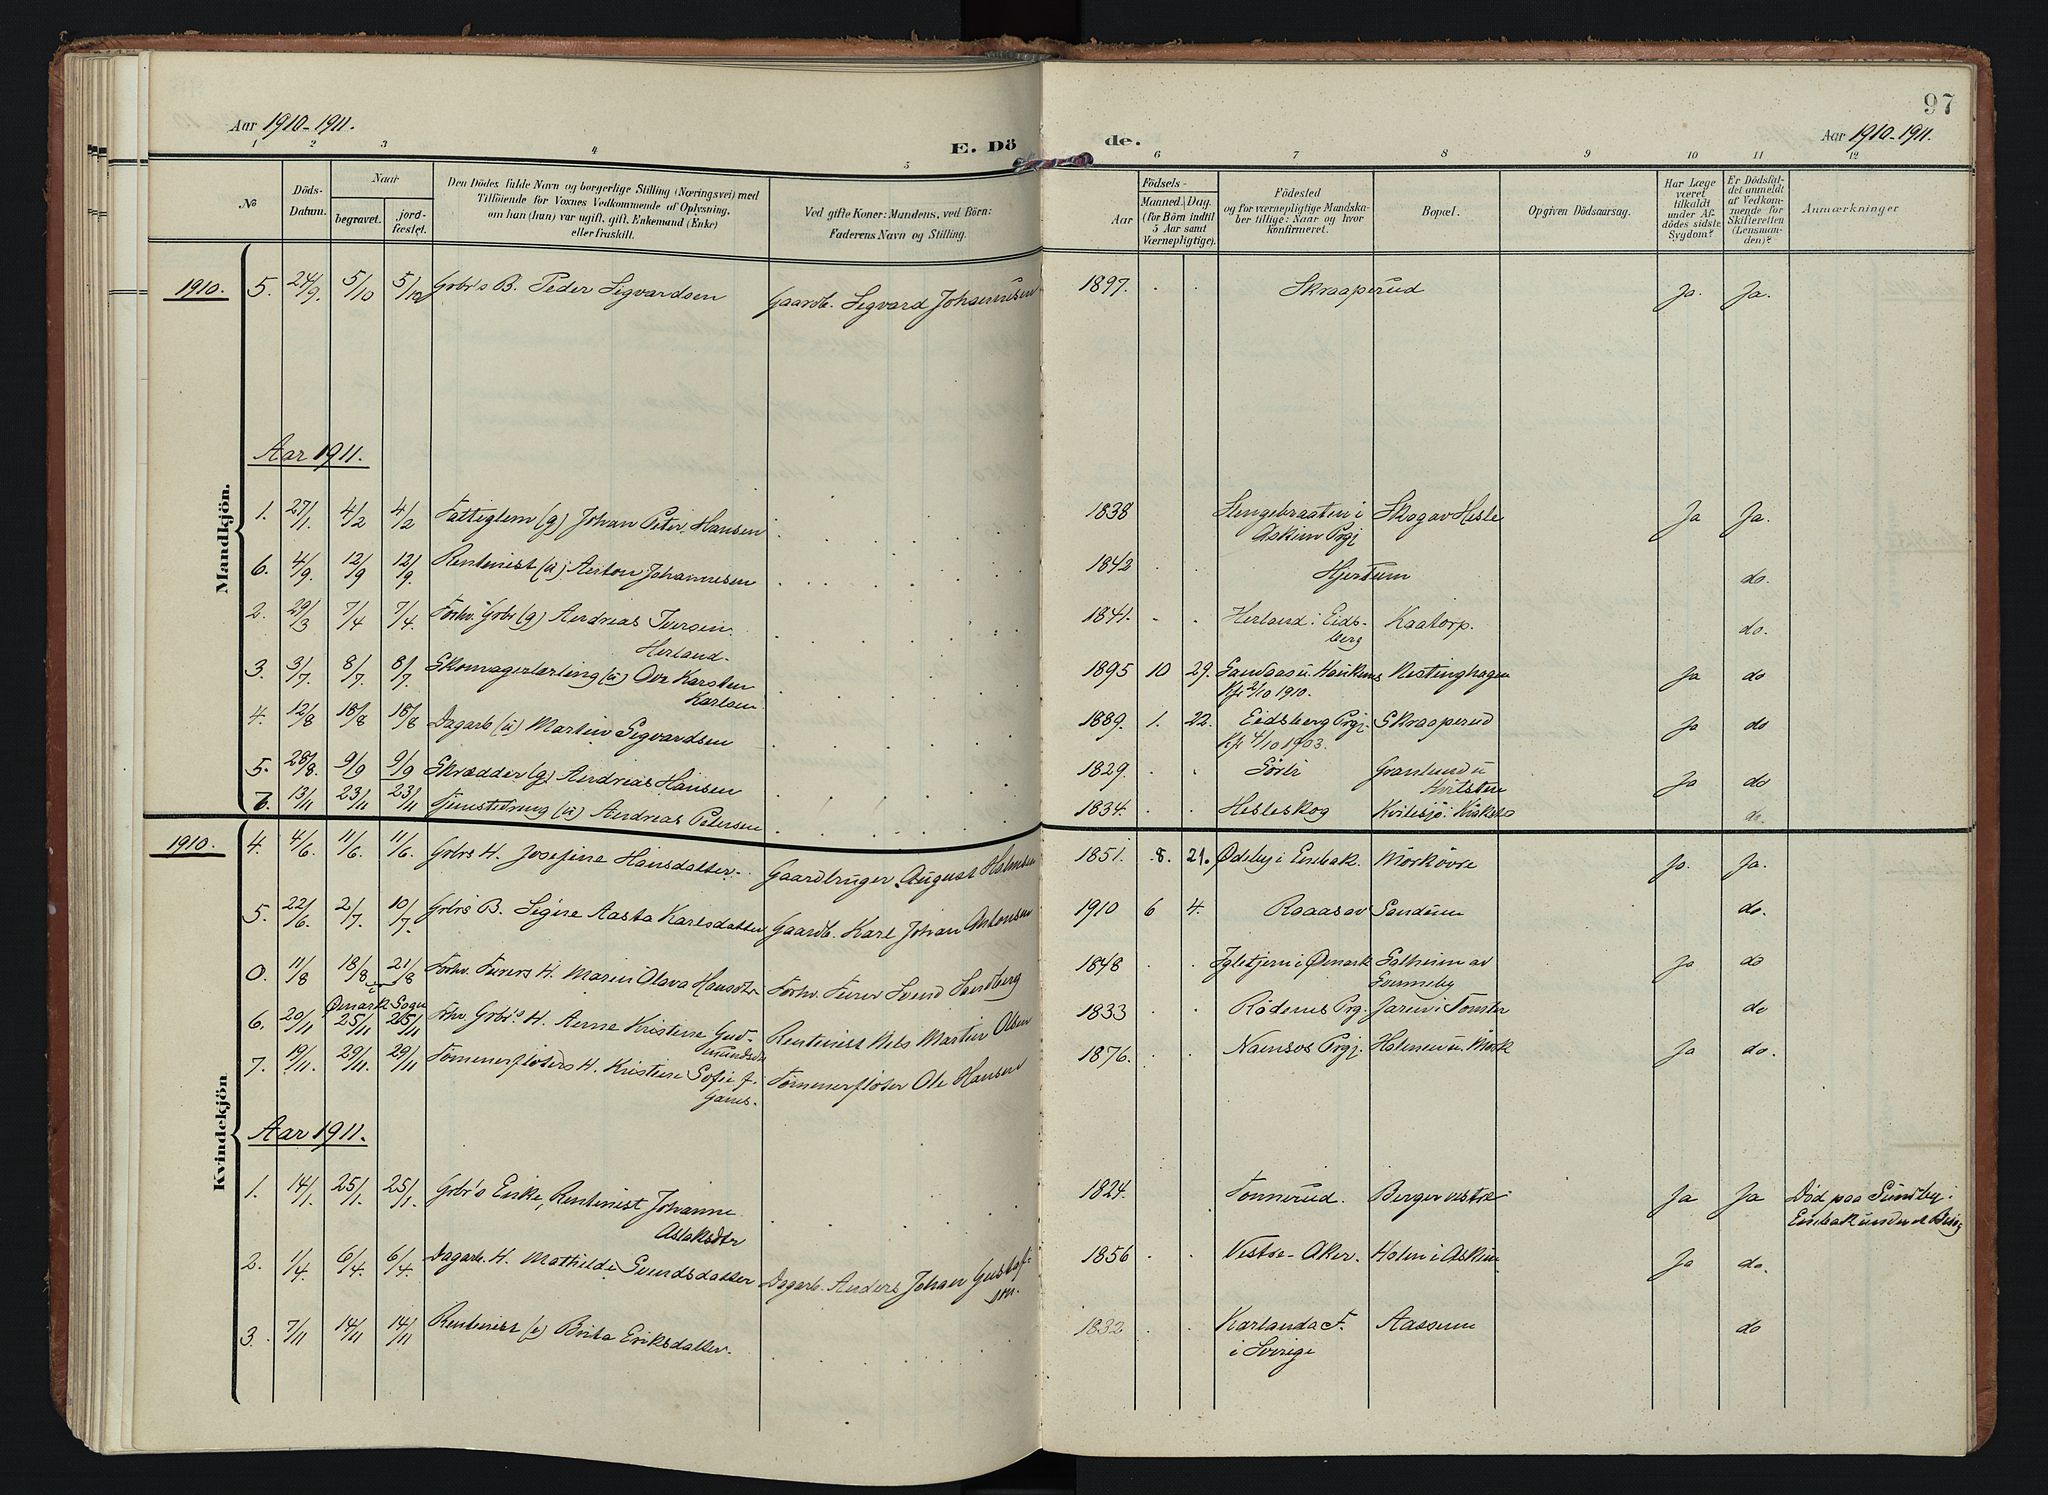 97
Aar 1910-1911.
E. Dö de.
Aar 1910-1911.
1 2 3 4 5 6 7 8 9 10 11 12
№
Döds-Datum.
Naar
begravet.
jord-fæstet.
Den Dödes fulde Navn og borgerlige Stilling (Næringsvei) med
Tilföiende for Voxnes Vedkommende af Oplysning,
om han (hun) var ugift, gift, Enkemand (Enke)
eller fraskilt.
Ved gifte Koner: Mandens, ved Börn:
Faderens Navn og Stilling.
Födsels-
Aar
Maaned. Dag.
(for Börn indtil
5 Aar samt
Værnepligtige).
Födested
og for værnepligtige Mandska-
ber tillige: Naar og hvor
konfirmeret.
Bopæl.
Opgiven Dödsaarsag.
Har Læge
været
tilkaldt
under Af-
dödes sidste
Sygdom?
Er Dödsfal-
det anmeldt
af Vedkom-
mende for
Skifteretten
(Lensman-
den)?
Anmærkninger
Mandkjön.
1910. 5. 24/9. 5/10 5/10 Grbr's B. Peder Sigvardsen Gaardb. Sigvard Johannesen 1897. Skraaperud Ja. Ja.
Aar 1911.
1. 27/1. 4/2 4/2 Fattiglem (g) Johan Peter Hansen 1838 Stengebraaten i Skogav Hesle Ja Ja.
Askim Prgj
6. 4/9. 12/9 12/9. Rentenist (u) Anton Johannesen 1842 Hjertum do.
2. 29/3 7/4 7/4. Forhv. Grbr (g) Andreas Iversen 1841. Herland i Eids- Kaatorp. do.
Herland. berg
3. 3/7. 8/7. 8/7. Skomagerlærling (u) Ove Karsten 1895 10 29. Sandaas u. Haukenes Nestinghagen Ja do
Karlsen Kfr 2/10 1910.
4. 12/8 18/8 18/8 Dagarb (u) Martin Sigvardsen 1889. 1. 22. Eidsberg Prgj. Skraaperud Ja do
Kfr 4/10 1903.
5. 28/8. 9/9 9/9 Skrædder (g) Andreas Hansen 1829. Sörli Granlund u Ja do
7. 13/11 23/11 23/11 (u) Andreas Petersen 1834. Hesleskog do.
Kvindekjön
1910. 4. 4/6. 11/6. 11/6. Grbrs H. Josefine Hansdatter. Gaardbruger August Holmsen 1851. 8. 21. Ødeby i Enebak. Mörkövre Ja. Ja.
5. 22/6. 2/7. 10/7. Grbrs B. Signe Aasta Karlsdatter Gaardb. Karl Johan Antonsen 1910 6 4. Raaas av Sandum do.
0. 11/8 18/8 21/8 Forhv. H. Maren Olava Hansdtr Forhv. Svend Sandberg 1848 Igletjern i Ømark Solheim av Ja do
i Ømark Sogn
6. 20/11 25/11 25/11 Fhv. Grbr's H. Anne Kristine Gud- Rentenist Nils Martin Olsen 1833 Rödenes Prg. Jaren i do
mundsdtr
7. 19/11. 29/11. 29/11 Tömmerflöters H. Kristine Sofie f. Tömmerflöter Ole Hansen 1876. Namsos Prgj. Holmen u. Mörk Ja do.
Aar 1911.
1. 14/1. 25/1. 25/1. Grbr's Enke, Rentenist Johanne 1824. Tönnerud. Berger vestre Ja Ja Död paa Sundby i
Aslaksdtr Enebak
2. 1/4 6/4. 6/4. Dagarb. H. Mathilde Svendsdatter Dagarb. Anders Johan Gustaf- 1856 Vestre-Aker. Holm i Askim Ja do.
sen.
3. 7/11 14/11 14/11 Rentenist (e) Brita Eriksdatter. 1832 Karlanda F. Aasum do
i Sverige